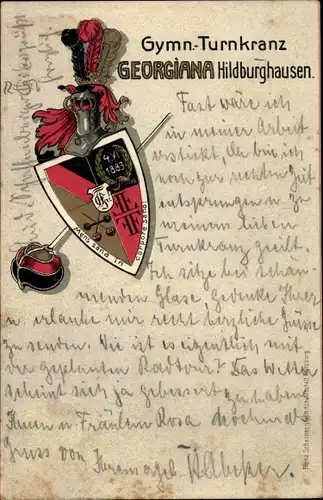 Gymn.-Turnkranz
GEORGIANA Hildburghausen.
4.VI.
1883
Mens sana in
corpore sano!
Fast wäre ich
in meiner Arbeit
erstickt, da bin ich
noch zur rechten Zeit
entsprungen u. zu
meinem lieben
Turnkranz geeilt.
Ich sitze bei schäu-
mendem Glase, gedenke Ihrer
u. erlaube mir recht herzliche Grüsse
zu senden. Wie ist es eigentlich mit
der geplanten Radtour? Das Wetter
scheint sich ja gebessert zu haben.
Ihnen u Fräulein Rosa nochmals
Gruss von Ihrem